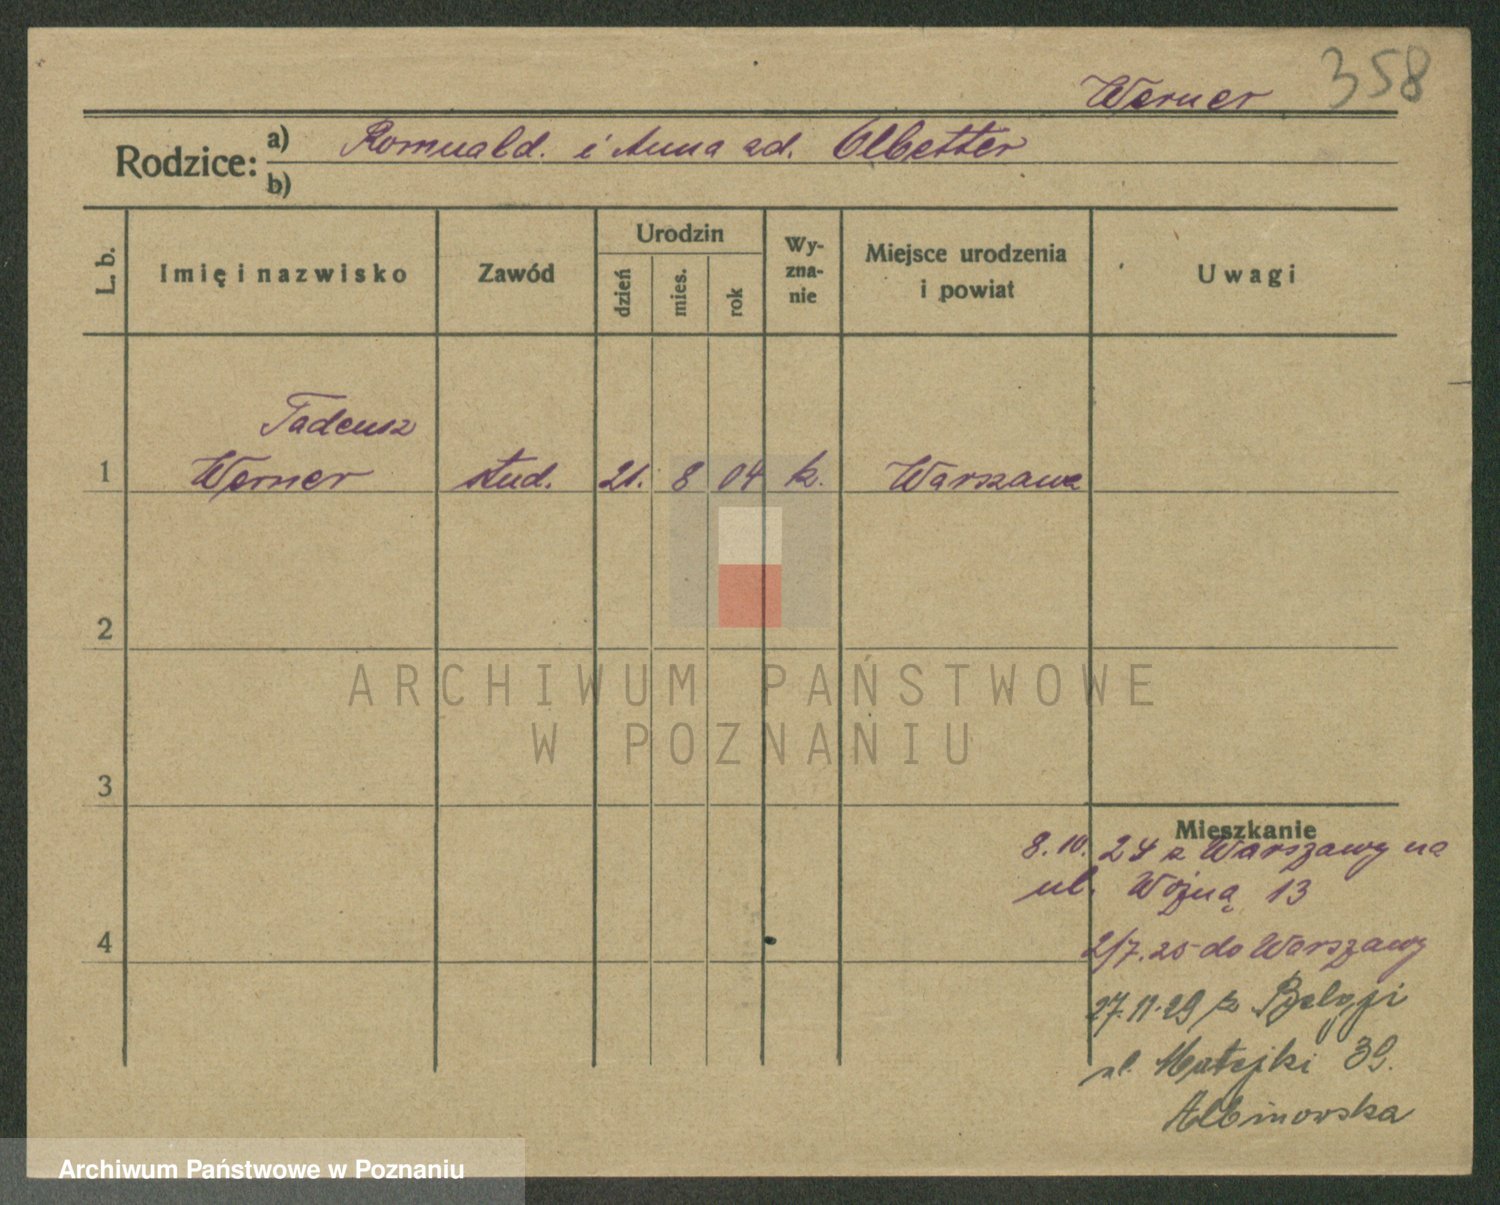 358
Werner
Rodzice: a) Romuald. i Anna zd. Olbetter
b)
L. b.
Imię i nazwisko
Zawód
Urodzin
dzień
mies.
rok
Wy-
zna-
nie
Miejsce urodzenia
i powiat
Uwagi
Tadeusz
1 Werner stud. 21. 8 04 k. Warszawa
2
3
4
Mieszkanie
8.10. 24 z Warszawy na
ul. Woźną 13
2/7.25 do Warszawy
27.11.29 z Belgji
ul. Matejki 39.
Albinowska
ARCHIWUM PAŃSTWOWE
W POZNANIU
Archiwum Państwowe w Poznaniu